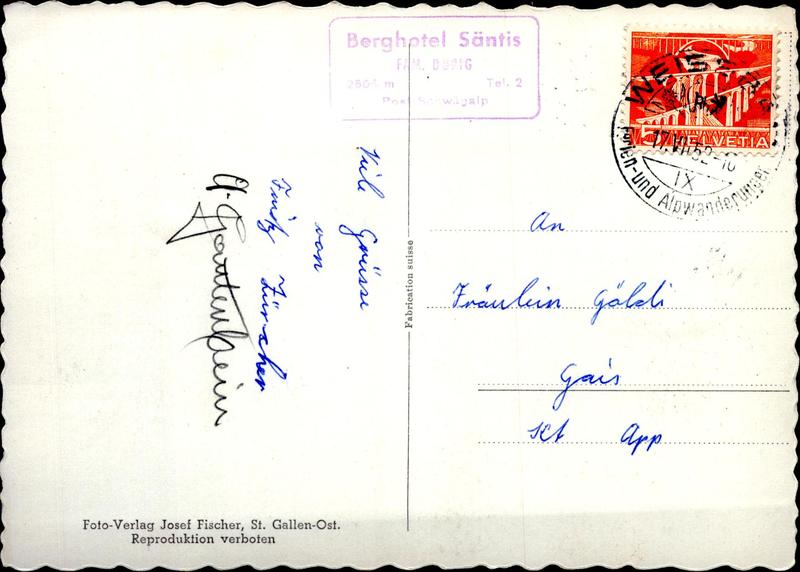 Berghotel Säntis
FAM. DÖRIG
2504 m Tel. 2
Post Schwägalp
HELVETIA
17.VII.52-10
IX
Ferien- und Alpwanderungen
Viele Grüsse
von
Zürcher
An
Fräulein Göldi
Gais
Kt App
Fabrication suisse
Foto-Verlag Josef Fischer, St. Gallen-Ost.
Reproduktion verboten